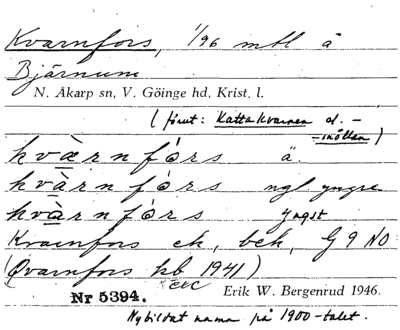 Kvarnfors, 1/96 mtl å
Bjärnum
N. Åkarp sn, V. Göinge hd, Krist. l.
(förut: Kattakvarnen el. -
-möllan)
kvæ̀rnfórs ä.
kvàrnfórs ngl yngre
kvàrnfórs yngst
Kvarnfors ek, bek, G 9 NO
(Qvarnfors kb 1941)
etc
Nr 5394. Erik W. Bergenrud 1946.
Nybildat namn på 1900-talet.